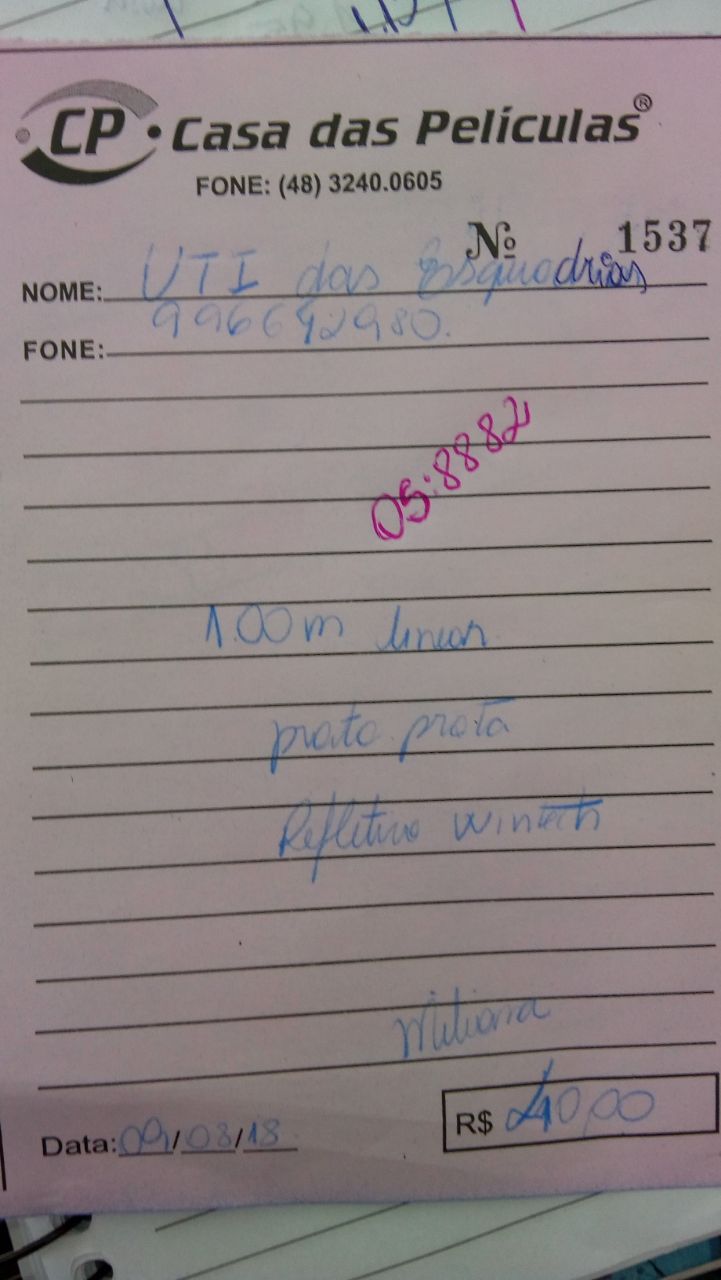 CP Casa das Películas®
FONE: (48) 3240.0605
Nº 1537
NOME: UTI das Esquadrias
996642980.
FONE:
OS:8882
1.00m linear
prata prata
Refletivo wintech
Data: 09/08/18
R$ 40,00